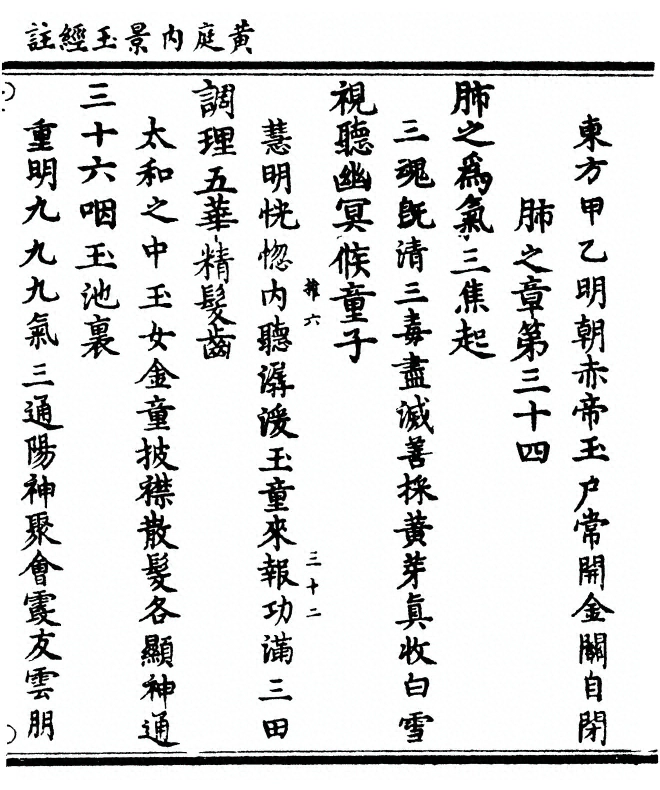 黃庭內景玉經註
東方甲乙明朝赤帝玉户常開金關自閉
肺之章第三十四
肺之爲氣三焦起
三魂旣清三毒盡滅善採黃芽眞收白雪
視聽幽冥候童子
慧明恍惚內聽潺湲玉童來報功滿三田
推六
三十二
調理五華精髮齒
太和之中玉女金童披襟散髮各顯神通
三十六咽玉池裏
重明九九九氣三通陽神聚會霞友雲朋